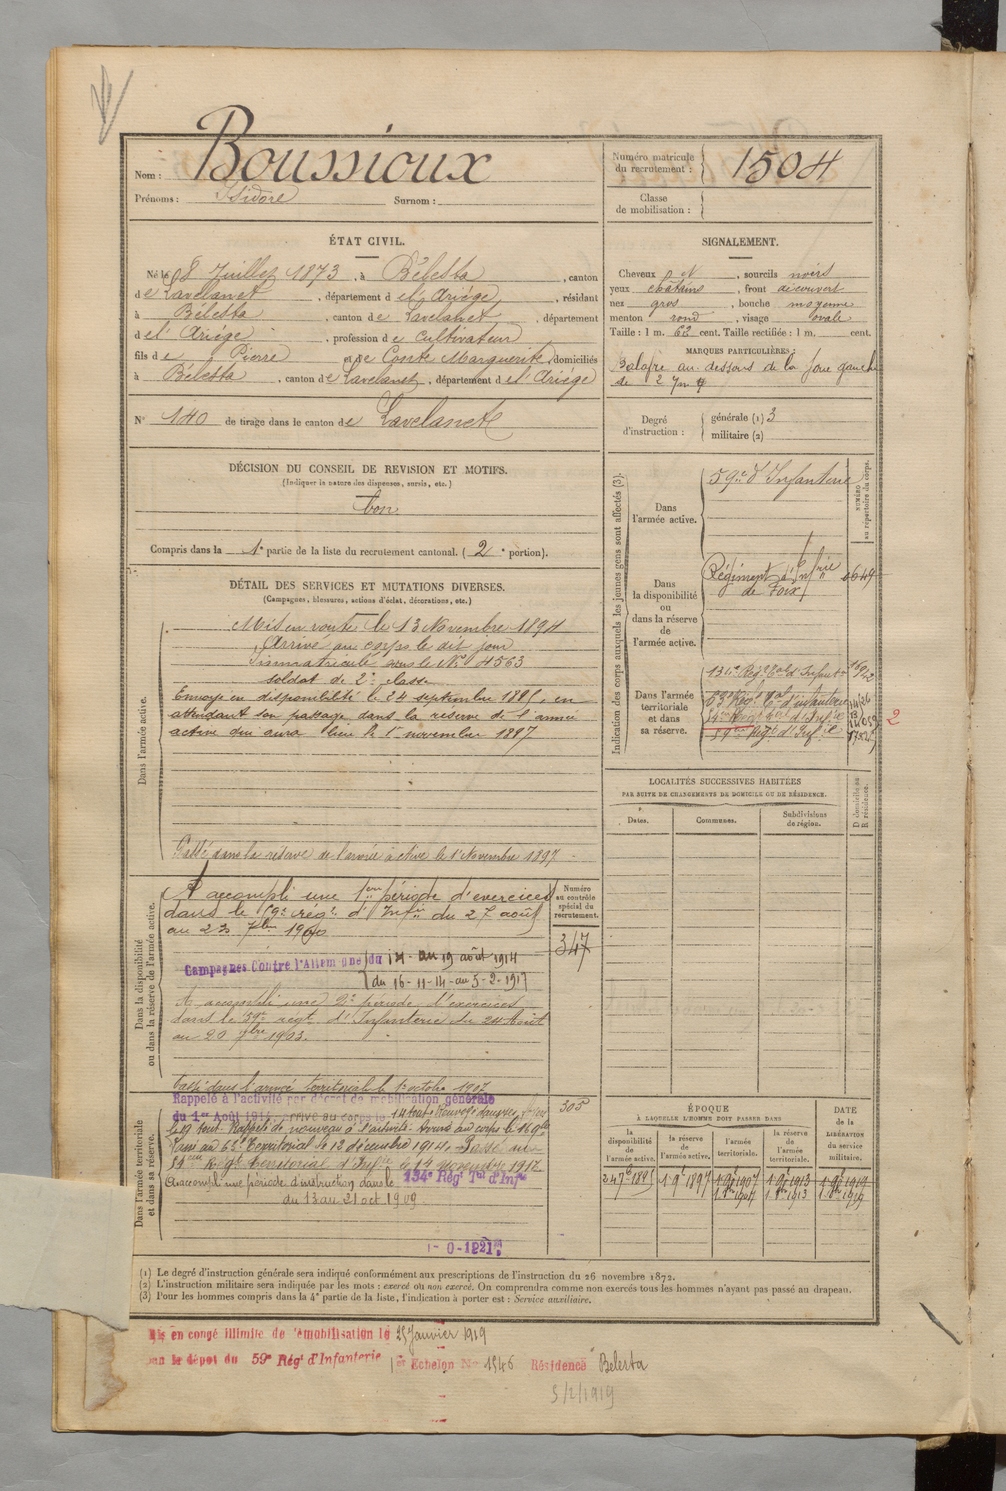 Nom : Boussioux
Prénoms : Isidore Surnom :
Numéro matricule du recrutement : 1504
Classe de mobilisation :
ÉTAT CIVIL.
Né le 8 Juillet 1873, à Bélesta, canton
de Lavelanet, département de l'Ariége, résidant
à Bélesta, canton de Lavelanet, département
de l'Ariége, profession de cultivateur
fils de Pierre et de Conte Marguerite, domiciliés
à Bélesta, canton de Lavelanet, département de l'Ariége
N° 140 de tirage dans le canton de Lavelanet
SIGNALEMENT.
Cheveux et, sourcils noirs
yeux chatains, front découvert
nez gros, bouche moyenne
menton rond, visage ovale
Taille : 1 m. 62 cent. Taille rectifiée : 1 m. cent.
MARQUES PARTICULIÈRES :
Balafre au dessous de la joue gauche
de 2
Degré d'instruction : générale (1) 3
militaire (2)
DÉCISION DU CONSEIL DE REVISION ET MOTIFS.
(Indiquer la nature des dispenses, sursis, etc.)
bon
Compris dans la 1e partie de la liste du recrutement cantonal. (2e portion).
DÉTAIL DES SERVICES ET MUTATIONS DIVERSES.
(Campagnes, blessures, actions d'éclat, décorations, etc.)
Dans l'armée active.
Mis en route le 13 Novembre 1894
Arrivé au corps le dit jour
Immatriculé sous le N° 4563
soldat de 2e classe
Envoyé en disponibilité le 24 septembre 1895, en
attendant son passage dans la réserve de l'armée
active qui aura lieu le 1 novembre 1897
Passé dans la réserve de l'armée active le 1er Novembre 1897
Dans la disponibilité ou dans la réserve de l'armée active.
A accompli une 1ère période d'exercices
dans le 59e rég. d'Infie du 27 août
au 23 7bre 1900
Campagnes Contre l'Allemagne du 14 au 19 août 1914
du 16-11-14 au 5-2-1917
A accompli une 2e période d'exercices
dans le 59e régt d'Infanterie du 24 Août
au 20 7bre 1903.
Passé dans l'armée territoriale le 1er octobre 1907
Numéro au contrôle spécial du recrutement.
347
305
Dans l'armée territoriale et dans sa réserve.
Rappelé à l'activité par décret de mobilisation générale
du 1er Août 1914. Arrivé au corps le 14 août. Renvoyé dans ses foyers
le 19 août. Rappelé de nouveau à l'activité. Arrivé au corps le 16 9bre
Passé au 63e Territorial le 12 décembre 1914. Passé au
Régt territorial d'Infie le 14 1917
A accompli une période d'instruction dans le 134e Régt Tal d'Infie
du 13 au 21 oct. 1909
Indication des corps auxquels les jeunes gens sont affectés (3).
NUMÉRO au répertoire du corps.
Dans l'armée active. 59e d'Infanterie
Dans la disponibilité ou dans la réserve de l'armée active. Régiment d'Infie de Foix
Dans l'armée territoriale et dans sa réserve. 134e Régt Tal d'Infanterie
63e Régt Tal d'infanterie
59e Régt d'Infie
2
LOCALITÉS SUCCESSIVES HABITÉES
PAR SUITE DE CHANGEMENTS DE DOMICILE OU DE RÉSIDENCE.
Dates. Communes. Subdivisions de région. D domicile ou R résidence.
ÉPOQUE
À LAQUELLE L'HOMME DOIT PASSER DANS
la disponibilité de l'armée active. la réserve de l'armée active. l'armée territoriale. la réserve de l'armée territoriale. DATE de la LIBÉRATION du service militaire.
24 7bre 1895 1 9bre 1897 1 9bre 1907 1 9bre 1913 1 9bre 1919
(1) Le degré d'instruction générale sera indiqué conformément aux prescriptions de l'instruction du 26 novembre 1872.
(2) L'instruction militaire sera indiquée par les mots : exercé ou non exercé. On comprendra comme non exercés tous les hommes n'ayant pas passé au drapeau.
(3) Pour les hommes compris dans la 4e partie de la liste, l'indication à porter est : Service auxiliaire.
Mis en congé illimité de démobilisation le 25 Janvier 1919
par le dépot du 59e Régt d'Infanterie 1er Echelon No 1546 Résidence Belesta
5/2/1919